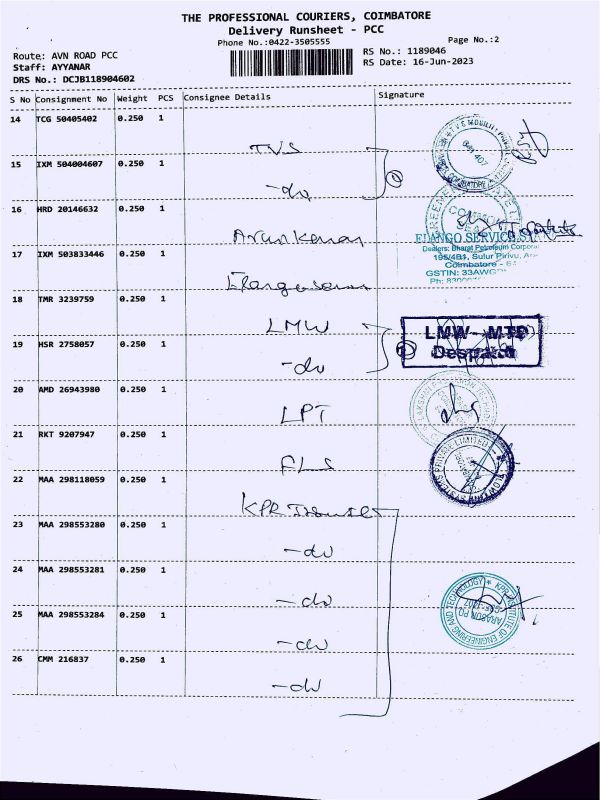 THE PROFESSIONAL COURIERS, COIMBATORE
Delivery Runsheet - PCC
Phone No.:0422-3505555
Page No.:2
Route: AVN ROAD PCC
Staff: AYYANAR
DRS No.: DCJB118904602
RS No.: 1189046
RS Date: 16-Jun-2023
S No Consignment No Weight PCS Consignee Details Signature
14 TCG 50405402 0.250 1 TVS
15 IXM 504004607 0.250 1 -do
16 HRD 20146632 0.250 1
17 IXM 503833446 0.250 1
ELANGO SERVICE
Dealers: Bharat Petroleum Corpora
195/4B1, Sulur Pirivu,
Coimbatore - 6
GSTIN: 33AWG
Ph:
18 TMR 3239759 0.250 1 LMW
19 HSR 2758057 0.250 1 -do
LMW - MTD
Despatch
20 AMD 26943980 0.250 1 LPT
21 RKT 9207947 0.250 1 FLS
22 MAA 298118059 0.250 1 KPR
23 MAA 298553280 0.250 1 -do
24 MAA 298553281 0.250 1 -do
25 MAA 298553284 0.250 1 -do
KPR INSTITUTE OF ENGINEERING AND TECHNOLOGY
ARASUR PO
26 CMM 216837 0.250 1 -do